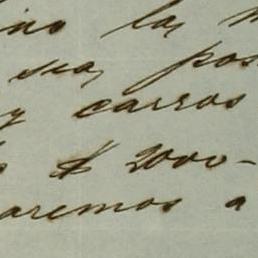 ino las
sea, pos
y carros
$ 2000-
aremos a